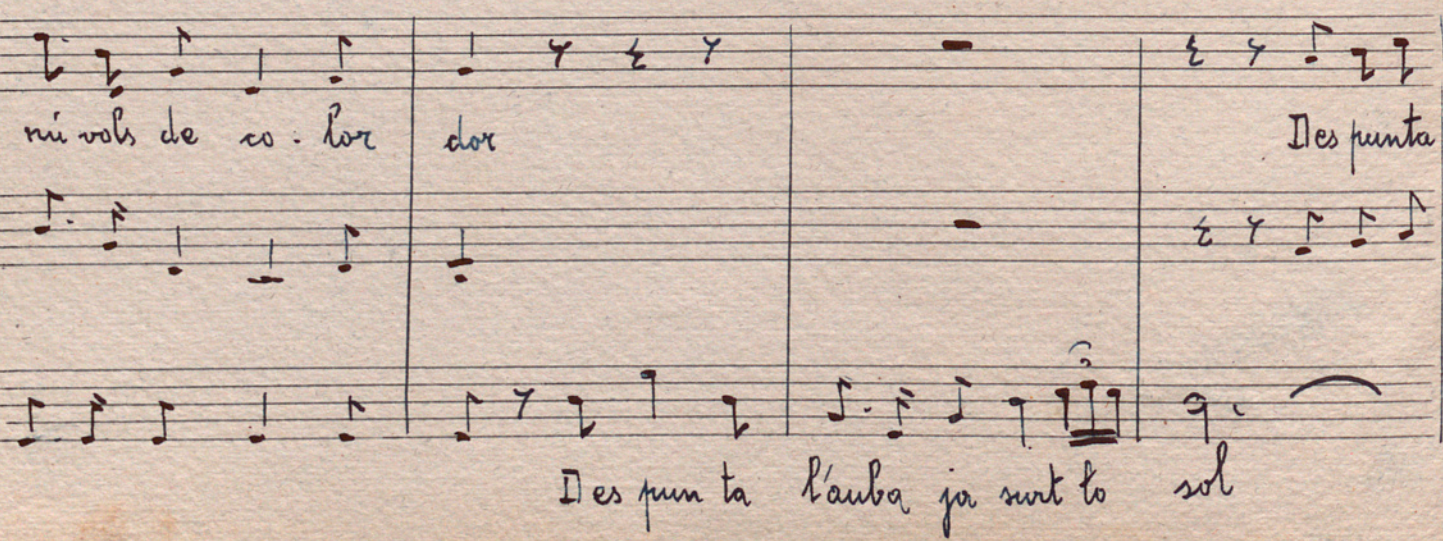 nú vols de co - lor dor Des punta
Des pun ta l'auba ja surt lo sol